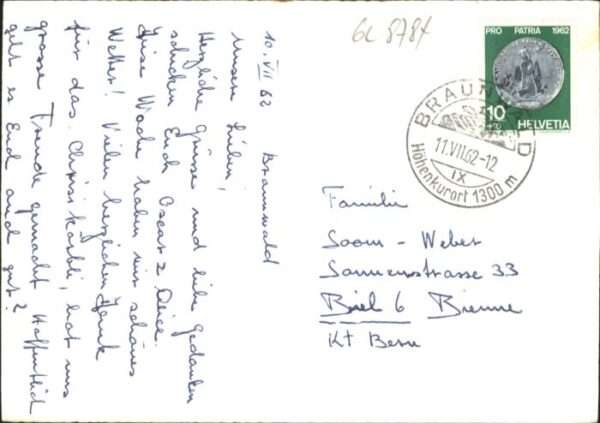 GL 8784
PRO PATRIA 1962
10
HELVETIA
BRAUNWALD
11.VII.62-12
IX
Höhenkurort 1300 m
10. VII 62 Braunwald
Unsere Lieben,
Herzliche Grüsse und liebe Gedanken
schicken Euch Oscar &
Diese Woche haben wir schönes
Wetter! Vielen herzlichen Dank
für das Chrisi, hat uns
grosse Freude gemacht Hoffentlich
geht es Euch auch gut?
Familie
Soom - Weber
Sonnenstrasse 33
Biel 6 Bienne
Kt Bern